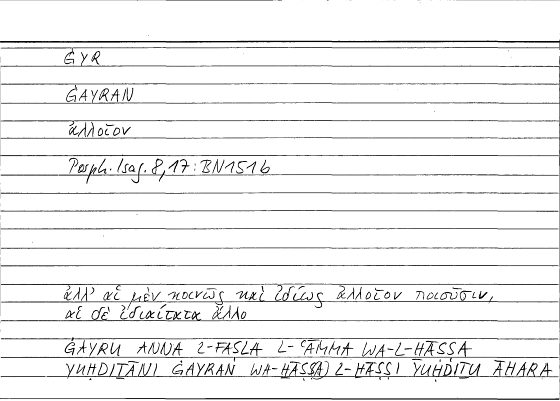 ĠYR
ĠAYRAN
ἀλλοῖον
Porph. Isag. 8,17: BN151b
ἀλλ' αἱ μὲν κοινῶς καὶ ἰδίως ἀλλοῖον ποιοῦσιν,
αἱ δὲ ἰδιαίτατα ἄλλο
ĠAYRU ANNA L-FAṢLA L-ʿĀMMA WA-L-ḪĀṢṢA
YUḤDIṮĀNI ĠAYRAN WA-ḪĀṢṢA) L-ḪĀṢṢI YUḤDIṮU ĀḪARA